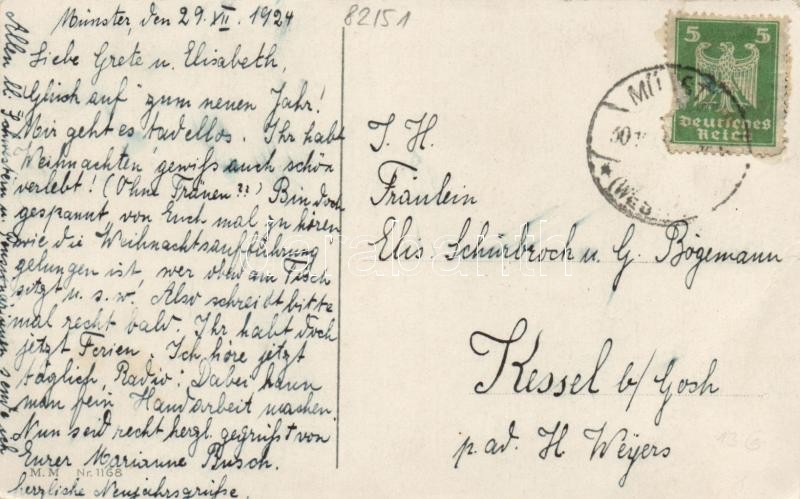 82151
Münster, den 29. XII. 1924
Liebe Grete u. Elisabeth,
"Glück auf" zum neuen Jahr!
Mir geht es tadellos. Ihr habt
Weihnachten gewiß auch schön
verlebt! (Ohne Tränen??) Bin doch
gespannt, von Euch mal zu hören
wie die Weihnachtsaufführung
gelungen ist, wer oben am Tisch
sitzt u. s. w. Also schreibt bitte
mal recht bald. Ihr habt doch
jetzt Ferien. Ich höre jetzt
täglich "Radio". Dabei kann
man fein Handarbeit machen.
Nun seid recht herzl. gegrüßt von
Eurer Marianne Busch.
M.M Nr. 1168
Allen ll. Schwestern u. Pensionärinnen sende ich
herzliche Neujahrsgrüße.
5 5
Deutsches
Reich
MÜNST
(WES
I. H.
Fräulein
Elis. Schürbrock u. G. Bögemann
Kessel b/ Goch
p. ad. H. Weyers
136
darabanth